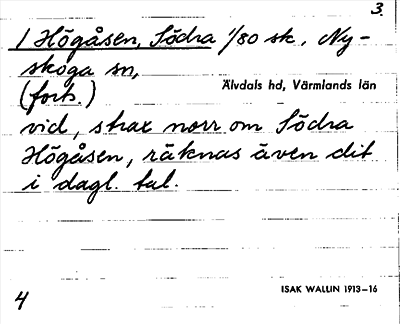 3.
1 Högåsen, Södra 1/80 sk., Ny-
skoga sn,
Älvdals hd, Värmlands län
(forts.)
vid, strax norr om Södra
Högåsen, räknas även dit
i dagl. tal.
ISAK WALLIN 1913–16
4